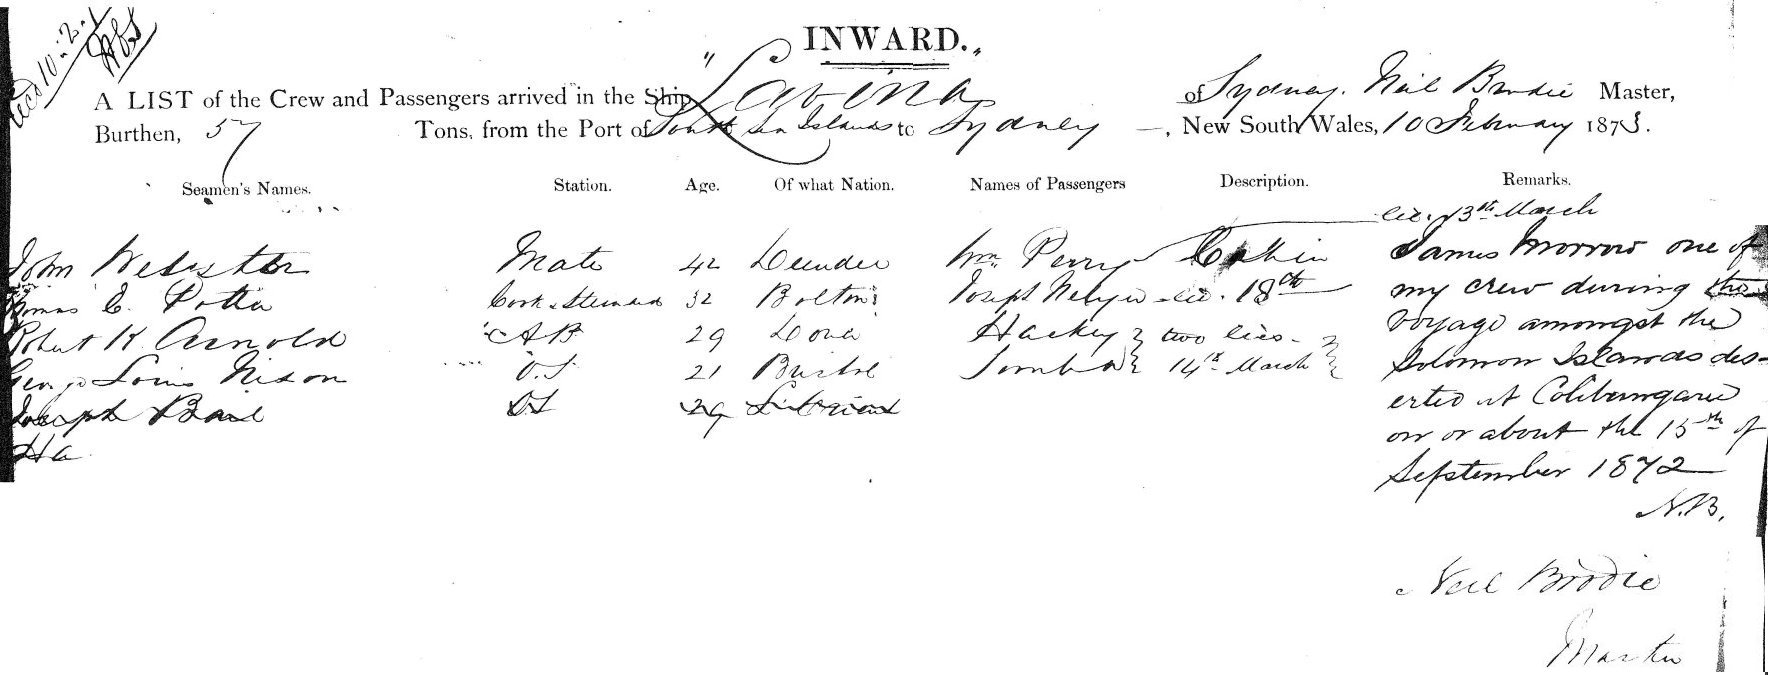 Recd 10.2.
INWARD.
A LIST of the Crew and Passengers arrived in the Ship "Lavina" of Sydney. Neil Brodie Master,
Burthen, 57 Tons, from the Port of South Sea Islands to Sydney, New South Wales, 10 February 1873.
Seamen's Names. Station. Age. Of what Nation. Names of Passengers Description. Remarks.
13th March
John Webster Mate 42 Dundee Wm Perry Cabin James Morrow one of
Thomas C. Potter Cook & Steward 32 Bolton Joseph 18th my crew during the
Robert K. Arnold AB 29 Hackey two voyage amongst the
George Louis Nixon O.S 21 Bristol 14th March Solomon Islands des-
Joseph OS 29 erted at
Ha on or about the 15th of
September 1872
N.B.
Neil Brodie
Master